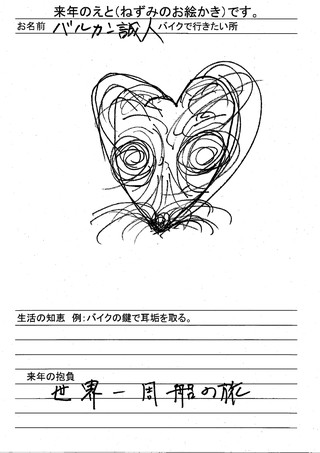 来年のえと(ねずみのお絵かき)です。
お名前 バルカン誠人 バイクで行きたい所
生活の知恵 例:バイクの鍵で耳垢を取る。
来年の抱負
世界一周船の旅